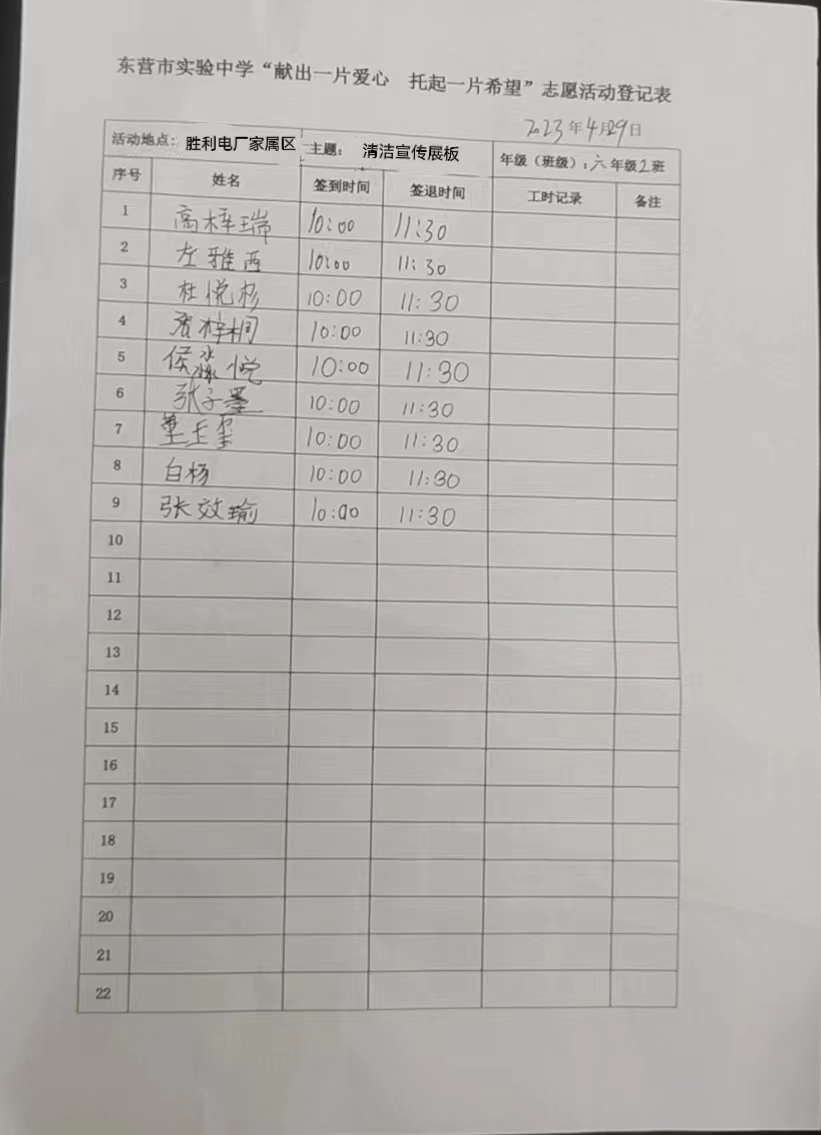 东营市实验中学“献出一片爱心 托起一片希望”志愿活动登记表
2023年4月29日
活动地点: 胜利电厂家属区 主题: 清洁宣传展板 年级（班级）: 六年级2班
序号 姓名 签到时间 签退时间 工时记录 备注
1 高梓瑞 10:00 11:30
2 左雅西 10:00 11:30
3 杜悦杉 10:00 11:30
4 梓桐 10:00 11:30
5 侯淼悦 10:00 11:30
6 张子墨 10:00 11:30
7 玉玺 10:00 11:30
8 白杨 10:00 11:30
9 张效瑜 10:00 11:30
10
11
12
13
14
15
16
17
18
19
20
21
22